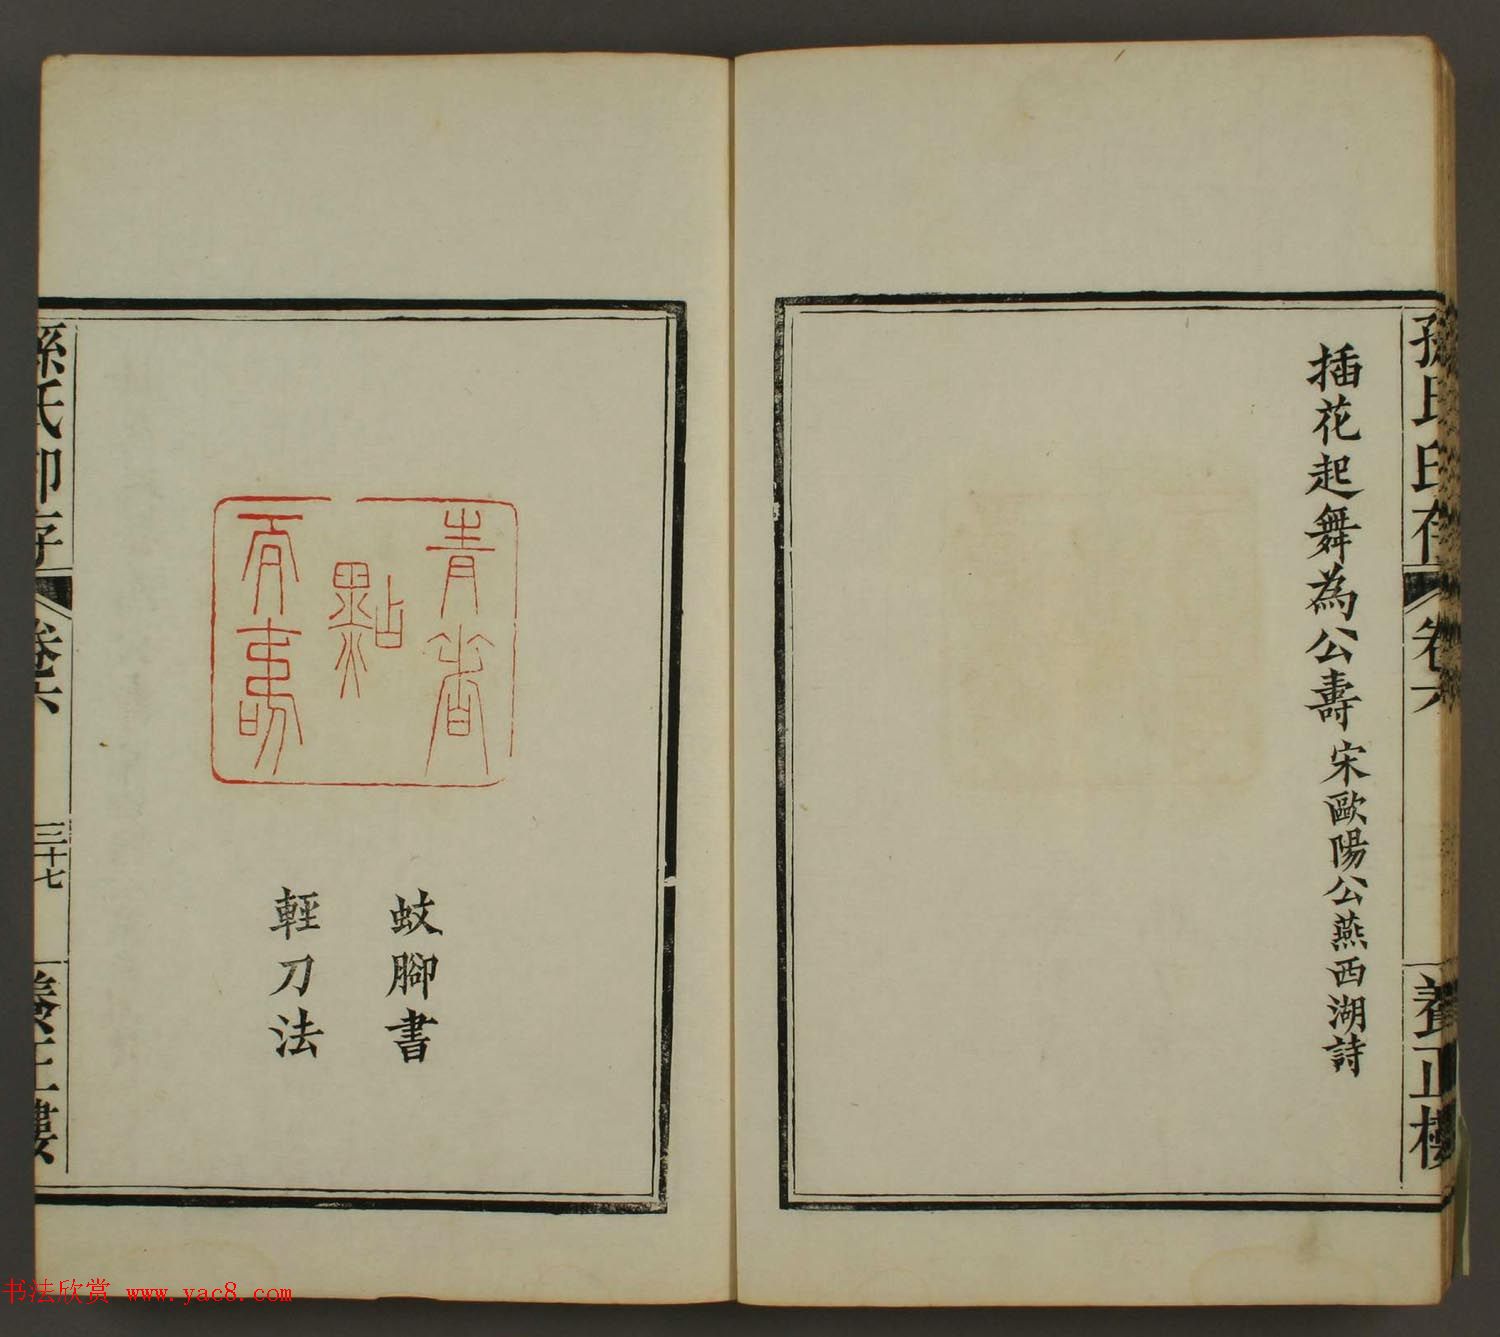 孫氏印存 卷六 養正樓
插花起舞為公壽 宋歐陽公燕西湖詩
青
點
蚊腳書
輕刀法
孫氏印存 卷六 三十七 養正樓
书法欣赏 www.yac8.com